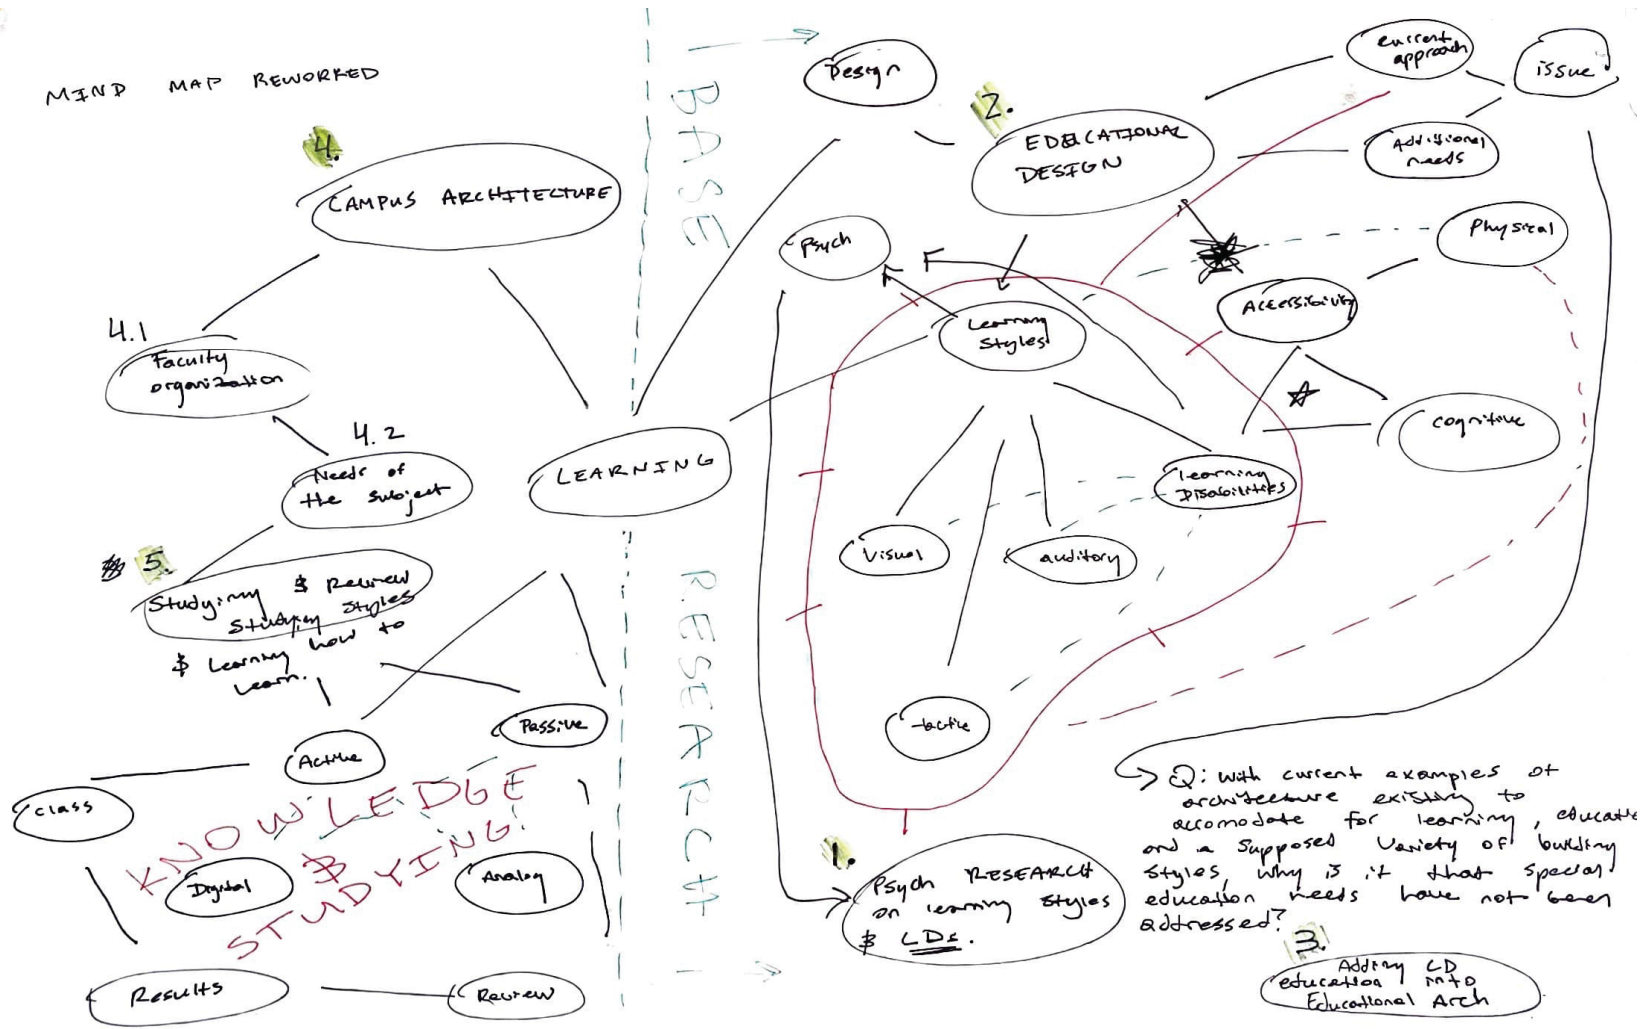 MIND MAP REWORKED
BASE
RESEARCH
4.
CAMPUS ARCHITECTURE
4.1
Faculty
organization
4.2
Needs of
the subject
5.
Studying & Review
Studying Styles
& Learning how to
learn.
Active
Passive
class
KNOWLEDGE
&
STUDYING!
Digital
Analog
Results
Review
LEARNING
Design
2.
EDUCATIONAL
DESIGN
current
approach
issue
Additional
needs
Psych
Physical
Accessibility
Learning
Styles
cognitive
Learning
Disabilities
Visual
auditory
tactile
1.
Psych RESEARCH
on learning styles
& LDs.
Q: With current examples of
architecture existing to
accomodate for learning, educati
and a supposed variety of building
styles, why is it that special
education needs have not been
addressed?
3.
Adding LD
education into
Educational Arch